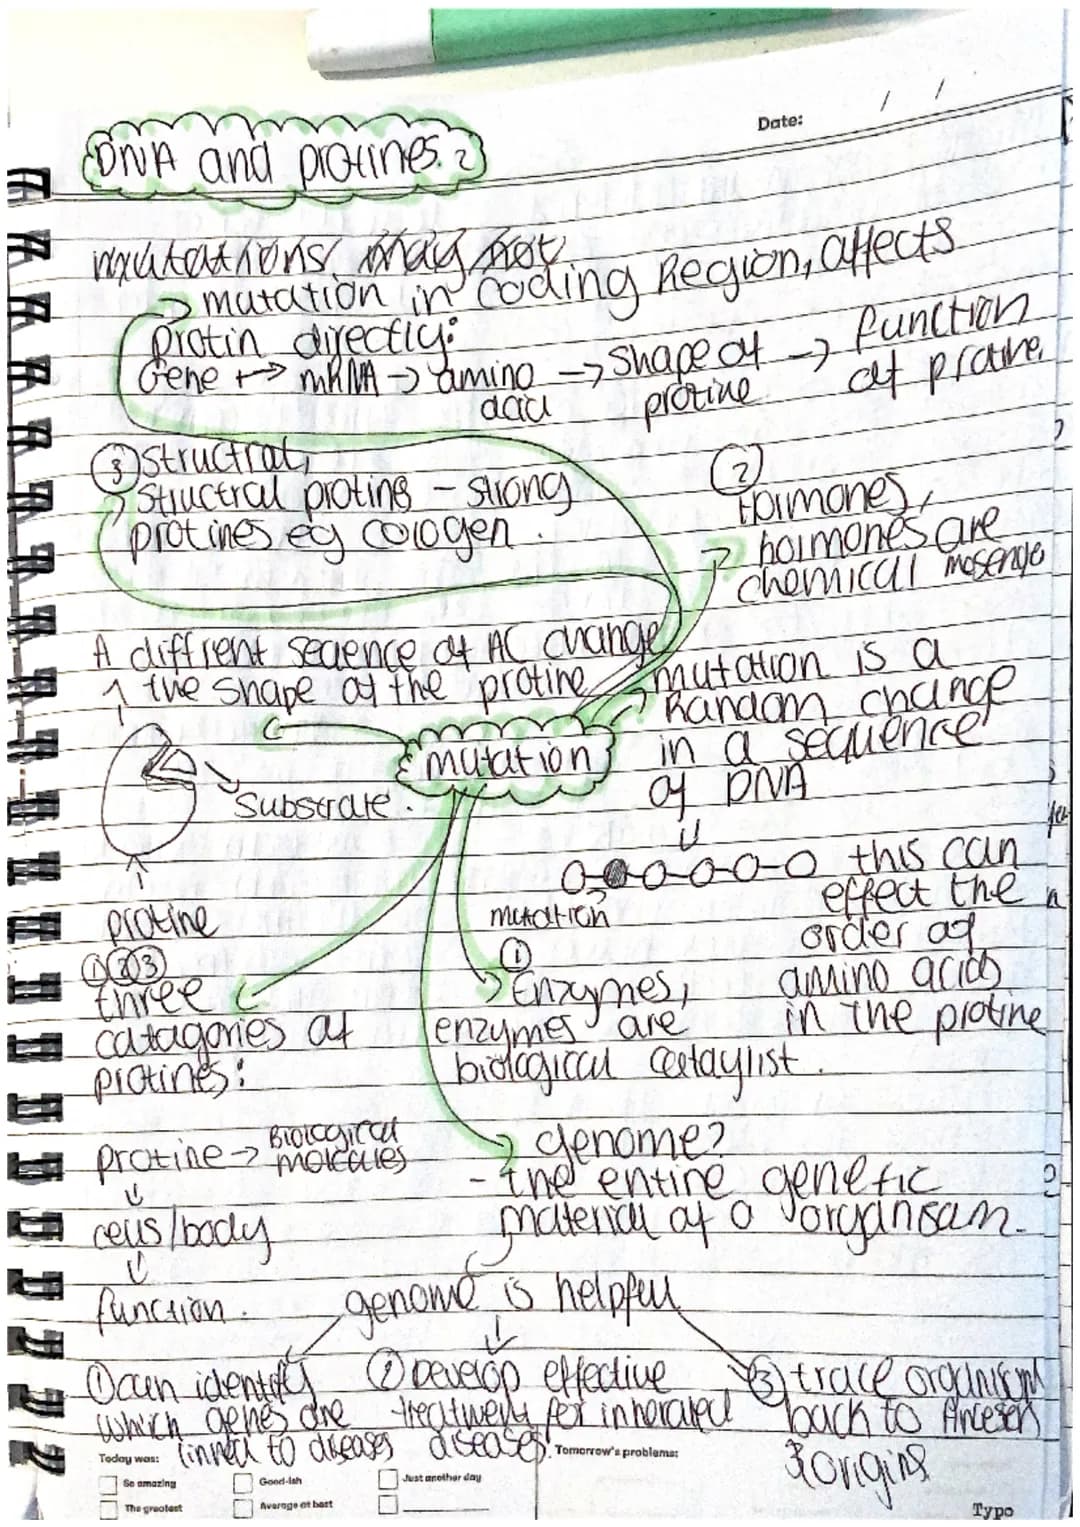 Date: / /
DNA and protines. 2
mutations may not
→ mutation in coding Region, affects
protin directly:
Gene → mRNA → amino acid → shape of protine → function of protine
③ structral,
structral protins - strong
protines eg cologen.
②
Hormones,
hormones are
chemical
A diffrent seqence of AC change
the shape of the protine
mutation
substrate.
protine
mutation is a
Random change
in a sequence
of DNA
mutation
this can
effect the
order of
amino acids
in the protine
①②③
three
catagories of
protines:
①
Enzymes,
enzymes are
biological cataylist.
protine → Biological molecules
cells/body
function.
genome?
- the entire genetic
material of a organisam.
genome is helpful
① can identify
which genes are
linked to diseases
② Develop effective
treatments for inherated
diseases.
③ trace organisms
back to
& origins
Today was:
So amazing
Good-ish
Just another day
The greatest
Average at best
Tomorrow's problems:
Typo